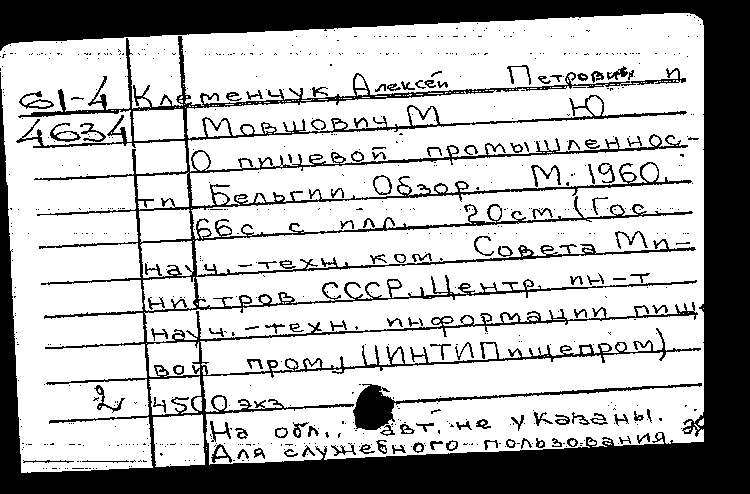 61-4 Клеменчук, Алексей Петрович и
4634 Мовшович, М Ю
О пищевой промышленнос-
ти Бельгии. Обзор. М., 1960.
66с. с илл. 20см. (Гос.
науч.-техн. ком. Совета Ми-
нистров СССР., Центр. ин-т
науч.-техн. информации пище-
вой пром., ЦИНТИПищепром)
2 4500 экз
На обл.: авт. не указаны.
Для служебного пользования.